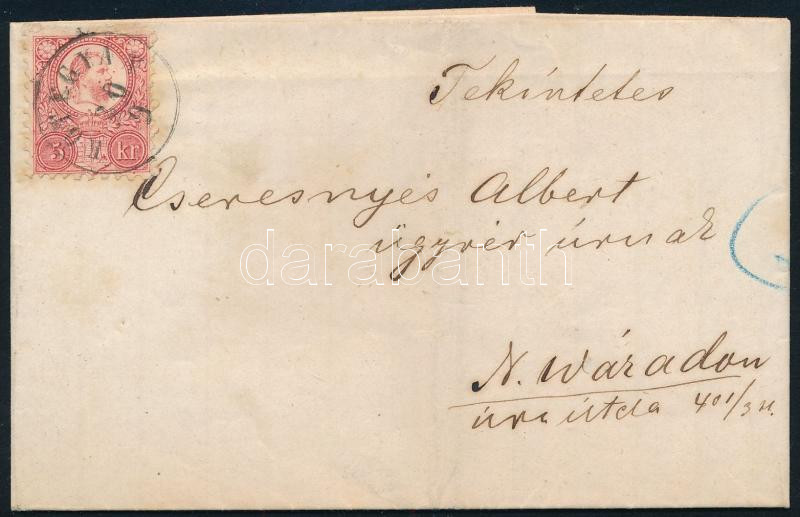 5 Kr
Tekintetes
Cseresnyés Albert
ügyvéd úrnak
N. Wáradon
úri útcza 401/3 sz.
darabanth